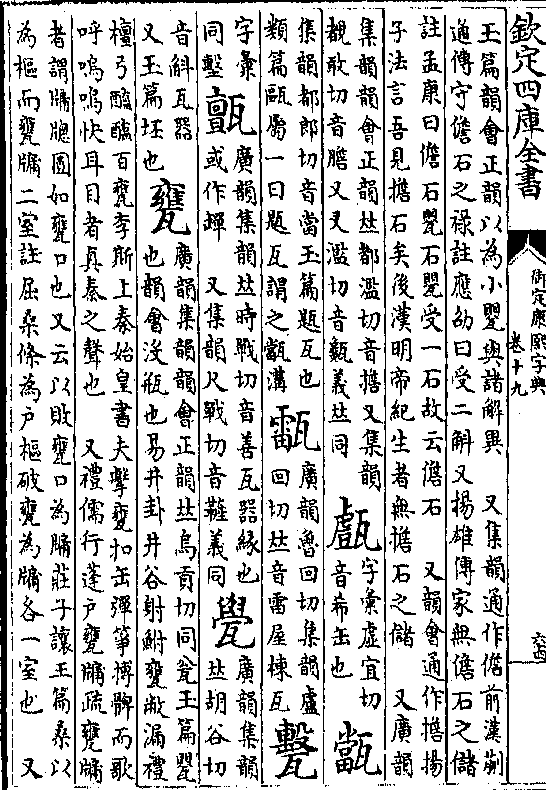 欽定四庫全書
御定康熙字典
卷十九
六四
玉篇韻會正韻以為小甖與諸解異　又集韻通作儋前漢蒯
通傳守儋石之祿註應劭曰受二斛又揚雄傳家無儋石之儲
註孟康曰儋石甖石甖受一石故云儋石　又韻會通作擔揚
子法言吾見擔石矣後漢明帝紀生者無擔石之儲　又廣韻
集韻韻會正韻𠀤都濫切音擔又集韻
覩敢切音膽又叉濫切音𪙊義𠀤同　甗字彙虛宜切
音希缶也　㽆
集韻都郎切音當玉篇題瓦也
類篇甌屬一曰題瓦謂之㽆溝　㽍廣韻魯回切集韻盧
回切𠀤音雷屋棟瓦　㽉
字彙
同墼　㽊廣韻集韻𠀤時戰切音善瓦器緣也
或作㪨　又集韻尺戰切音䡪義同　㽇廣韻集韻
𠀤胡谷切
音斛瓦器
又玉篇坯也　甕廣韻集韻韻會正韻𠀤烏貢切同瓮玉篇甖
也韻會汲瓶也易井卦井谷射鮒甕敝漏禮
檀弓醯醢百甕李斯上秦始皇書夫擊甕扣缶彈箏搏髀而歌
呼嗚嗚快耳目者真秦之聲也　又禮儒行蓬戸甕牖疏甕牖
者謂牖牕圓如甕口也又云以敗甕口為牖莊子讓王篇桑以
為樞而甕牖二室註屈桑條為戸樞破甕為牖各一室也　又